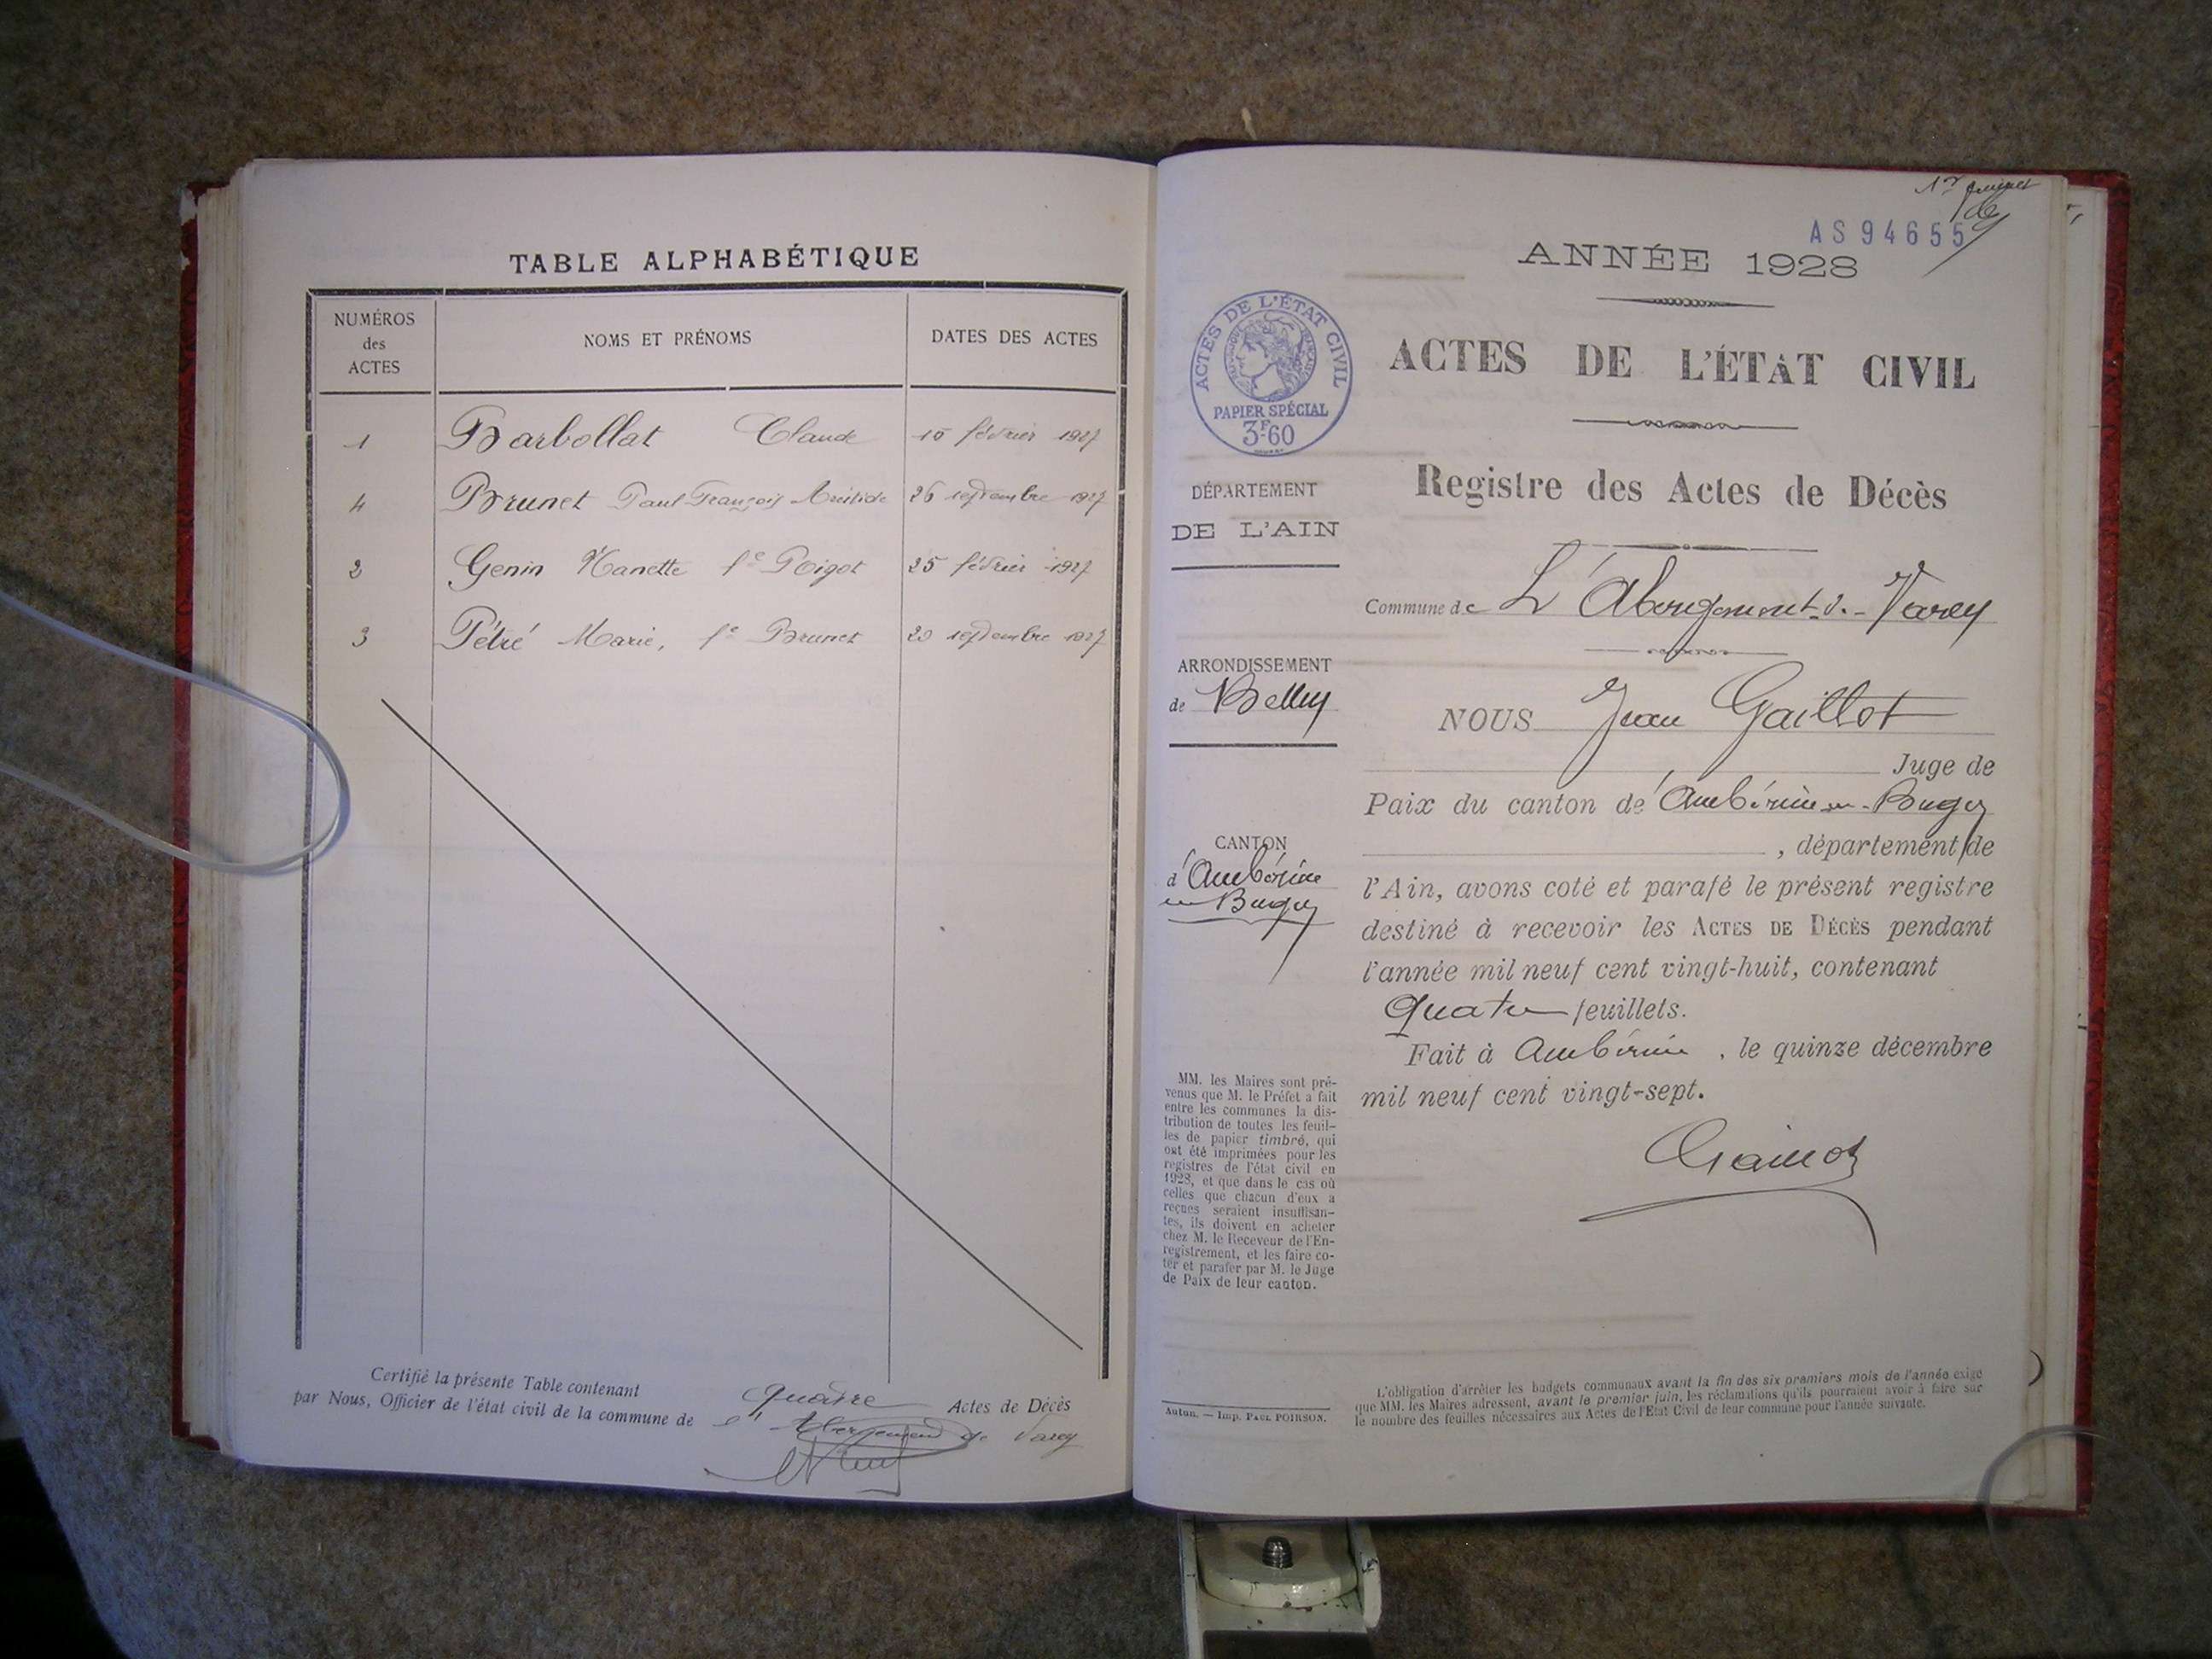 TABLE ALPHABÉTIQUE
NUMÉROS des ACTES
NOMS ET PRÉNOMS
DATES DES ACTES
1 Barbollat Claude 10 février 1927
4 Brunet Paul François Aristide 26 septembre 1927
2 Genin Nanette fe Pigot 25 février 1927
3 Pétré Marie, fe Brunet 20 septembre 1927
Certifié la présente Table contenant quatre Actes de Décès
par Nous, Officier de l'état civil de la commune de l'Abergement de Varey
AS 94655
ANNÉE 1928
ACTES DE L'ÉTAT CIVIL
PAPIER SPÉCIAL
3F60
ACTES DE L'ÉTAT CIVIL
Registre des Actes de Décès
DÉPARTEMENT
DE L'AIN
Commune de L'Abergement-d.-Varey
ARRONDISSEMENT
de Belley
NOUS Jean Gaillot
Juge de
Paix du canton de Ambérieu-en-Bugey
, département de
CANTON
d'Ambérieu
en Bugey
l'Ain, avons coté et parafé le présent registre
destiné à recevoir les ACTES DE DÉCÈS pendant
l'année mil neuf cent vingt-huit, contenant
Quatre feuillets.
Fait à Ambérieu, le quinze décembre
mil neuf cent vingt-sept.
MM. les Maires sont pré-
venus que M. le Préfet a fait
entre les communes la dis-
tribution de toutes les feuil-
les de papier timbré, qui
ont été imprimées pour les
registres de l'état civil en
1928, et que dans le cas où
celles que chacun d'eux a
reçues seraient insuffisan-
tes, ils doivent en acheter
chez M. le Receveur de l'En-
registrement, et les faire co-
ter et parafer par M. le Juge
de Paix de leur canton.
Autun. — Imp. PAUL POIRSON.
L'obligation d'arrêter les budgets communaux avant la fin des six premiers mois de l'année exige
que MM. les Maires adressent, avant le premier juin, les réclamations qu'ils pourraient avoir à faire sur
le nombre des feuilles nécessaires aux Actes de l'Etat Civil de leur commune pour l'année suivante.